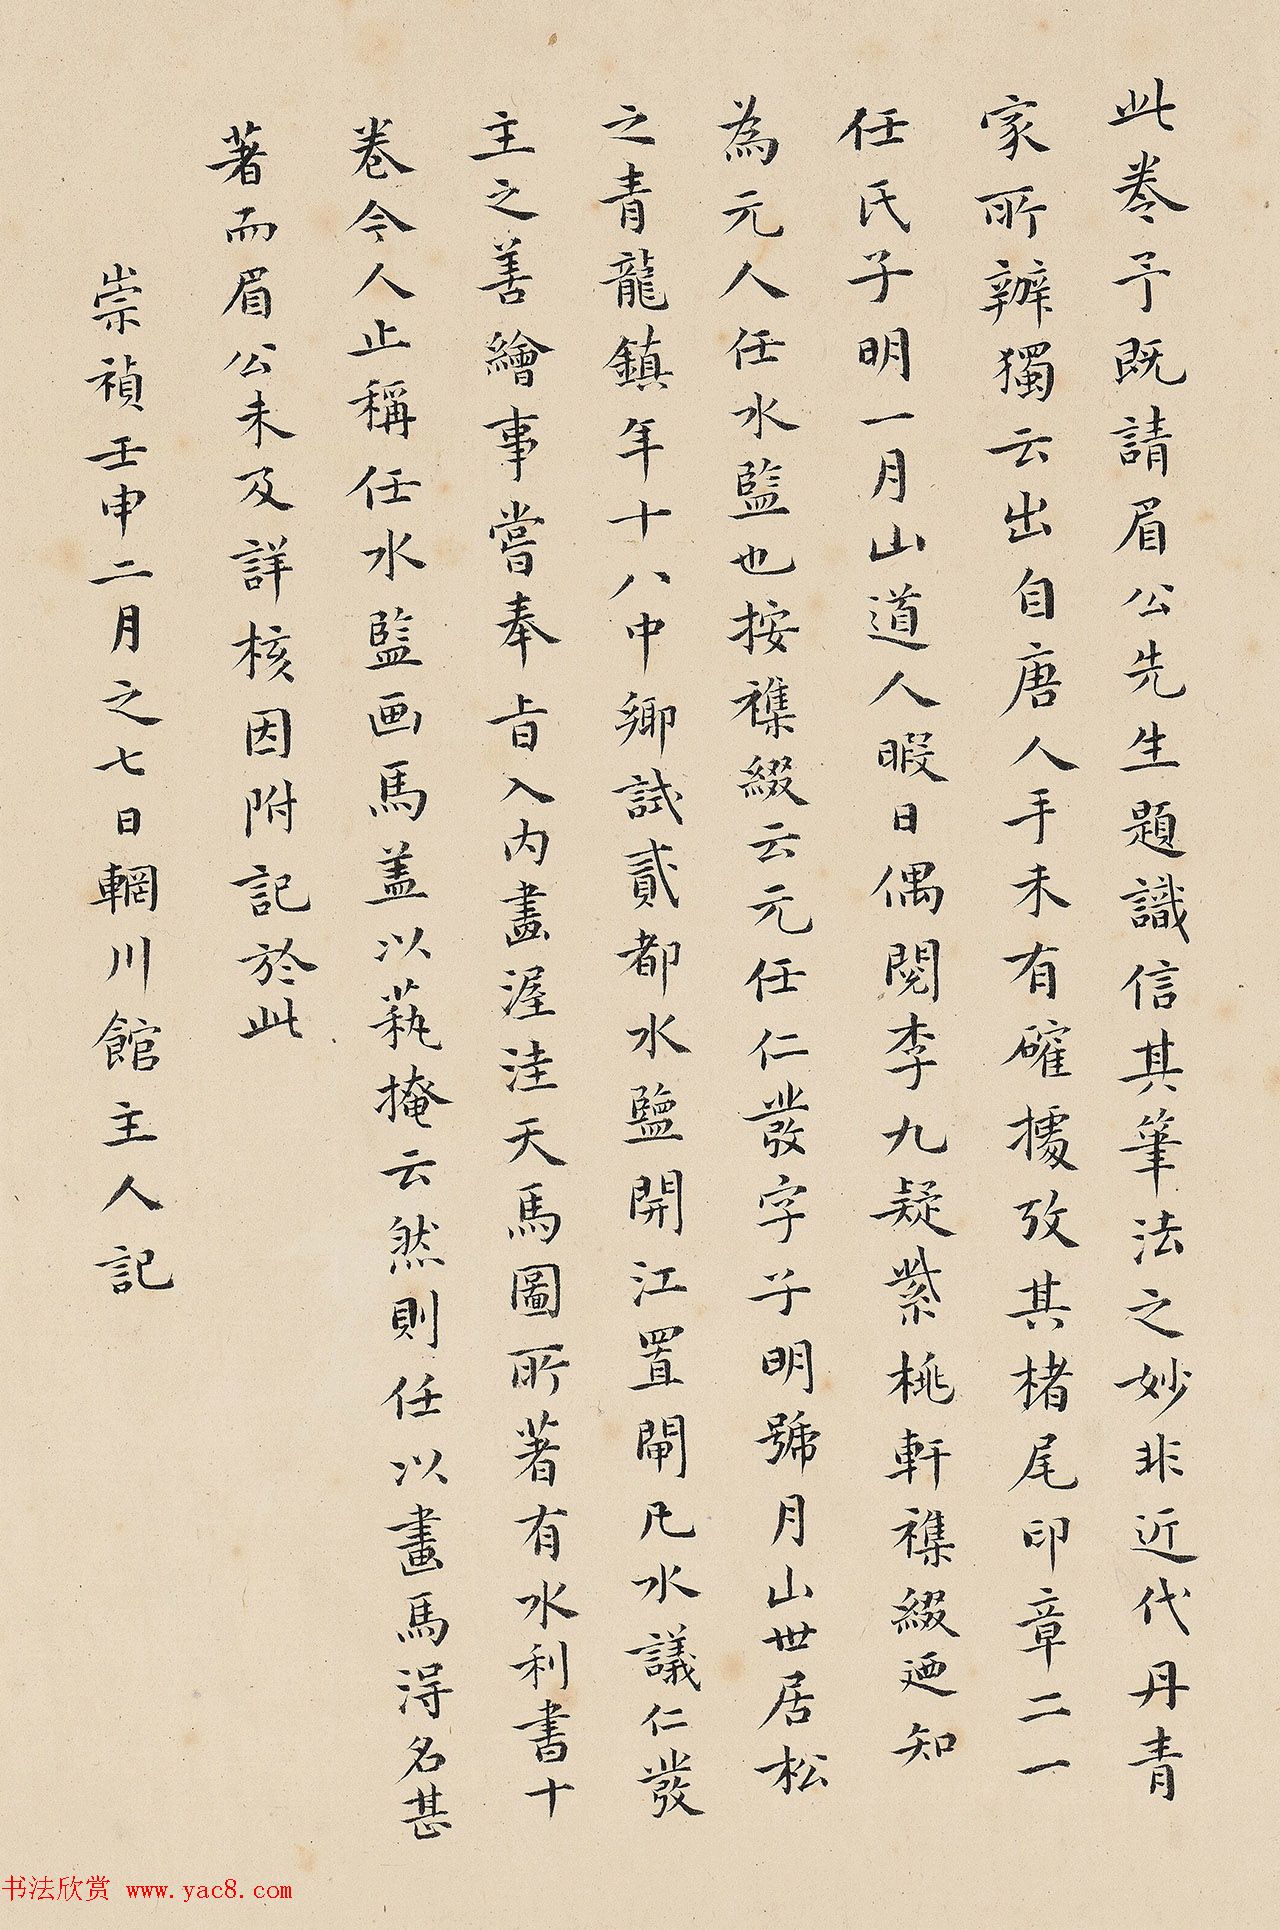 此卷予既請眉公先生題識信其筆法之妙非近代丹青
家所辦獨云出自唐人手未有確據攷其楮尾印章二一
任氏子明一月山道人暇日偶閱李九疑紫桃軒襍綴廼知
為元人任水監也按襍綴云元任仁發字子明號月山世居松
之青龍鎮年十八中鄉試貳都水鹽開江置閘凡水議仁發
主之善繪事嘗奉旨入内畫渥洼天馬圖所著有水利書十
卷今人止稱任水監画馬盖以藝掩云然則任以畫馬得名甚
著而眉公未及詳核因附記於此
崇禎壬申二月之七日輞川館主人記
书法欣赏 www.yac8.com